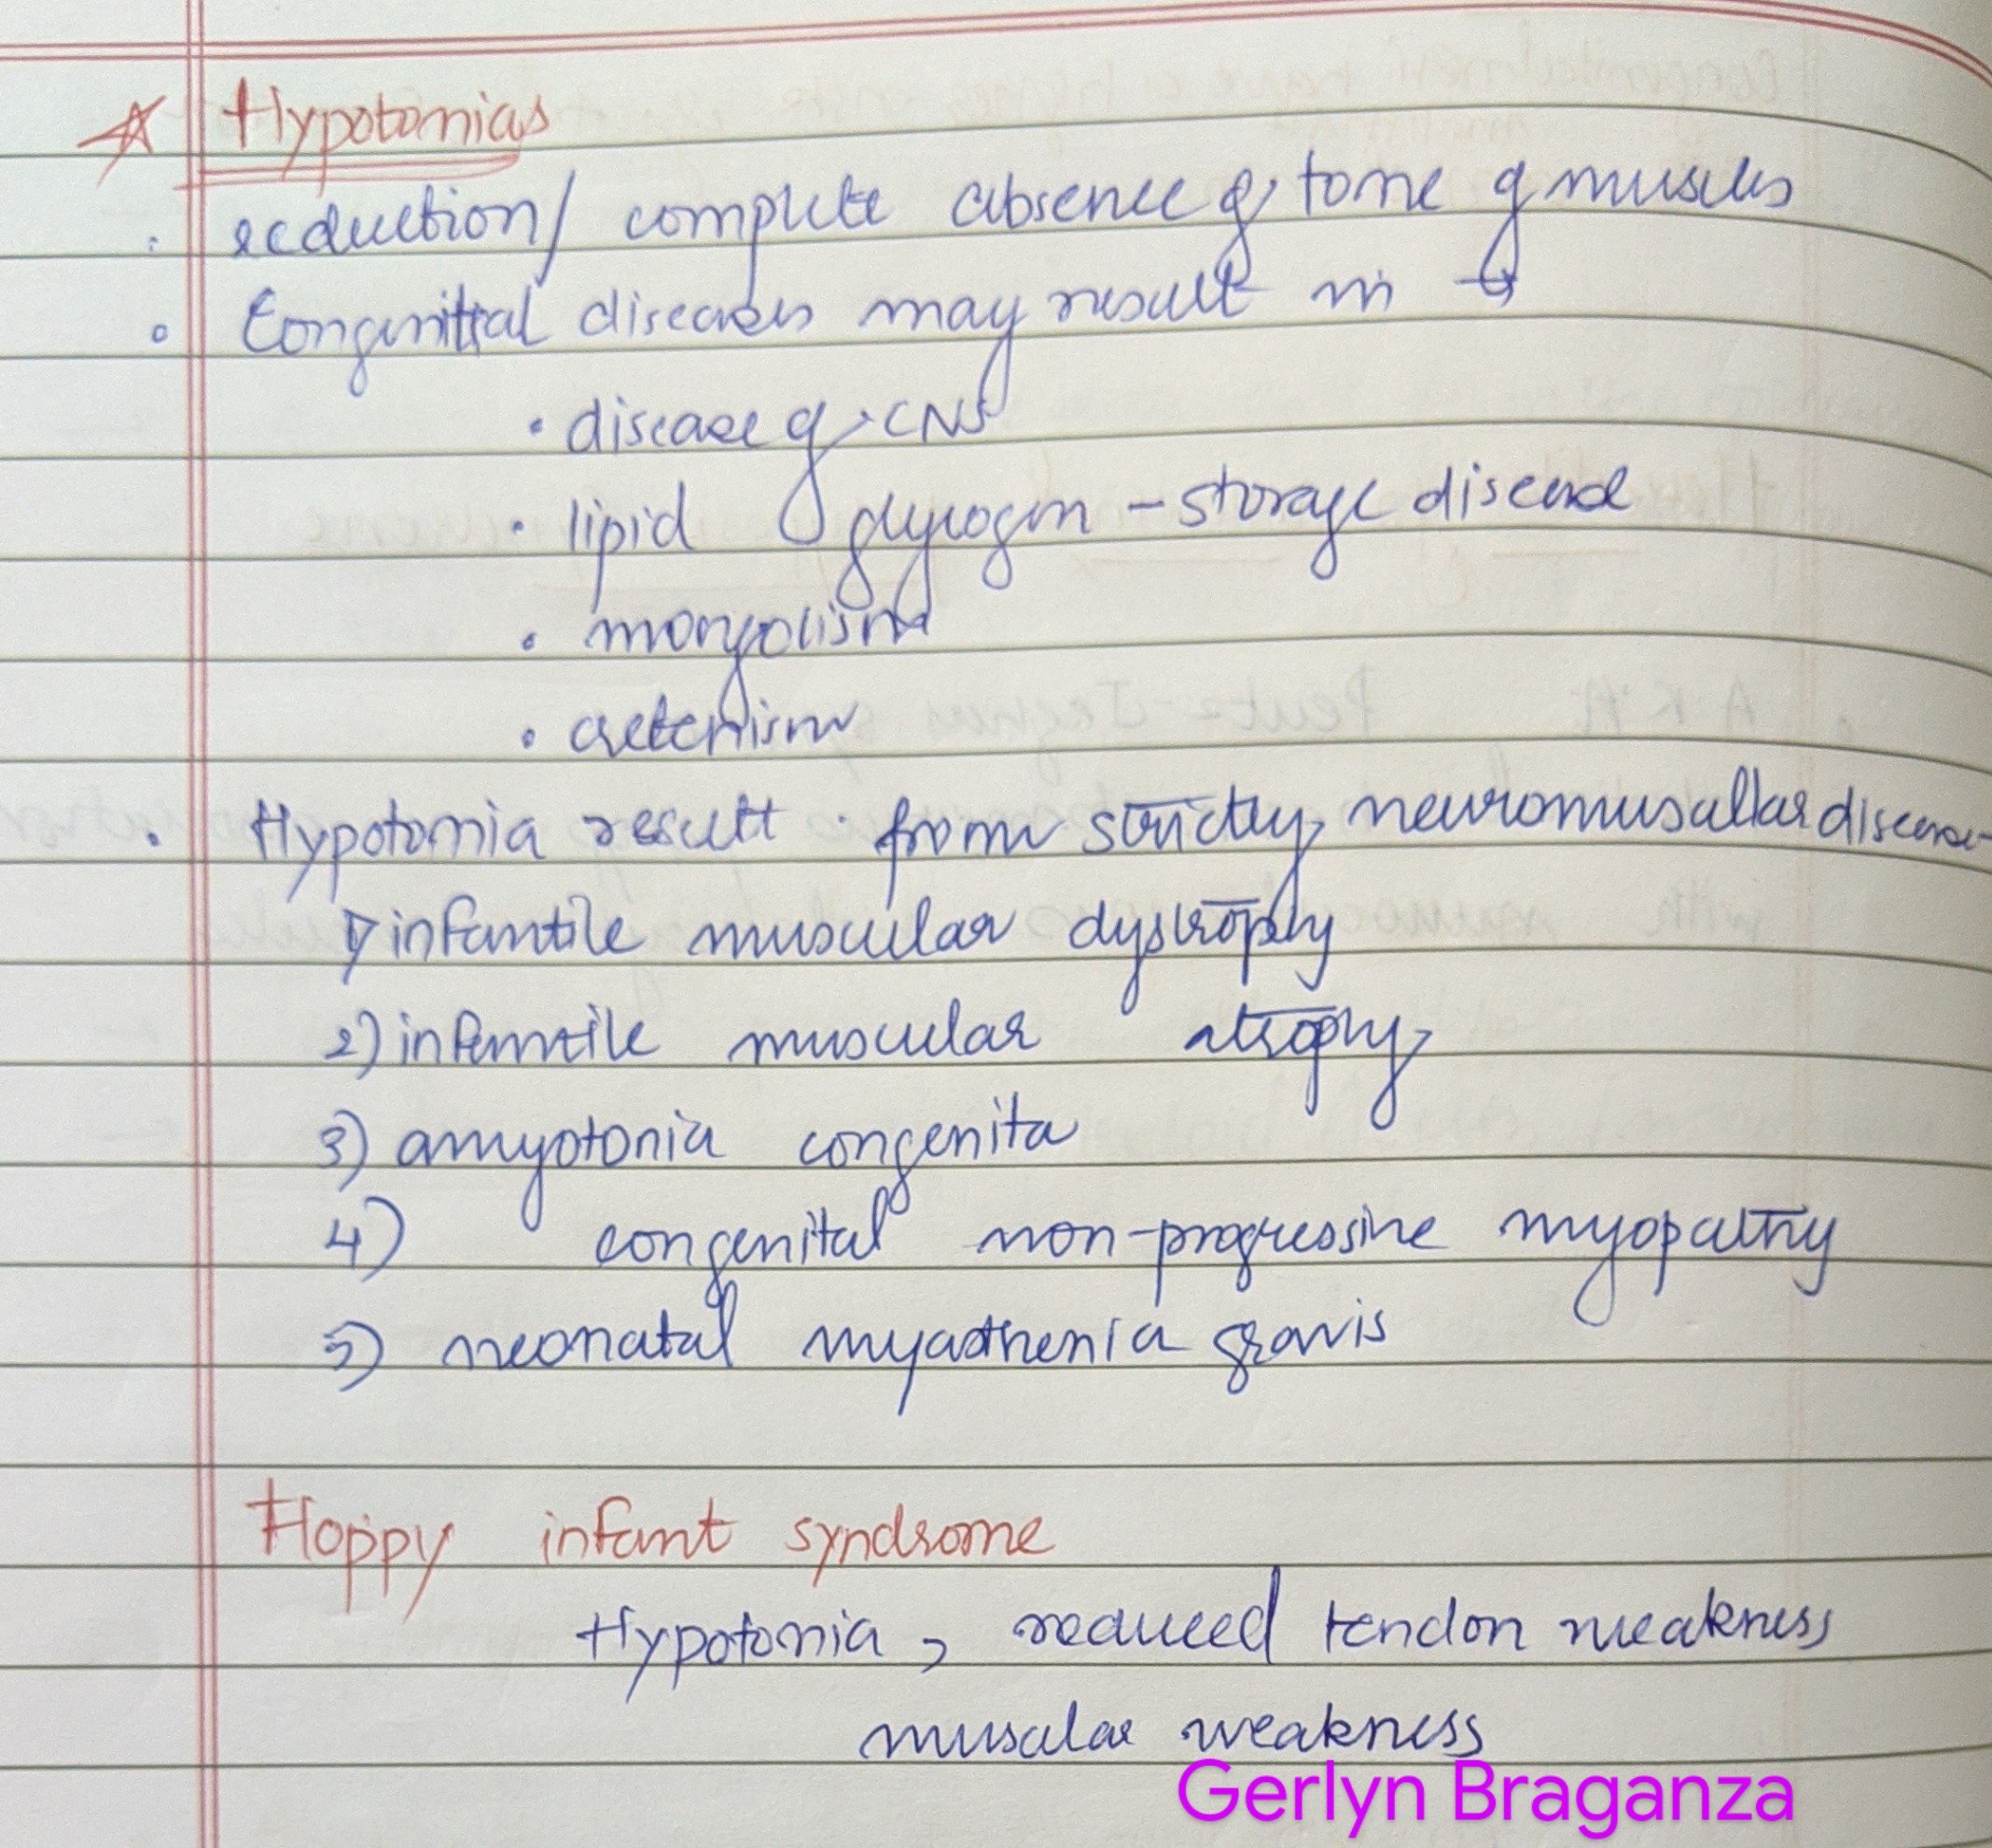 ☆ Hypotonias
. reduction/ complete absence of tone of muscles
• Congenital diseases may result in ↪
• disease of CNS
• lipid glycogen - storage disease
• mongolism
• cretenism
• Hypotonia result from strictly neuromusullar disease
1) infantile muscular dystrophy
2) infantile muscular atrophy
3) amyotonia congenita
4) congenital non-progressive myopathy
5) neonatal myasthenia gravis
Floppy infant syndrome
Hypotonia, reduced tendon weakness
musular weakness
Gerlyn Braganza